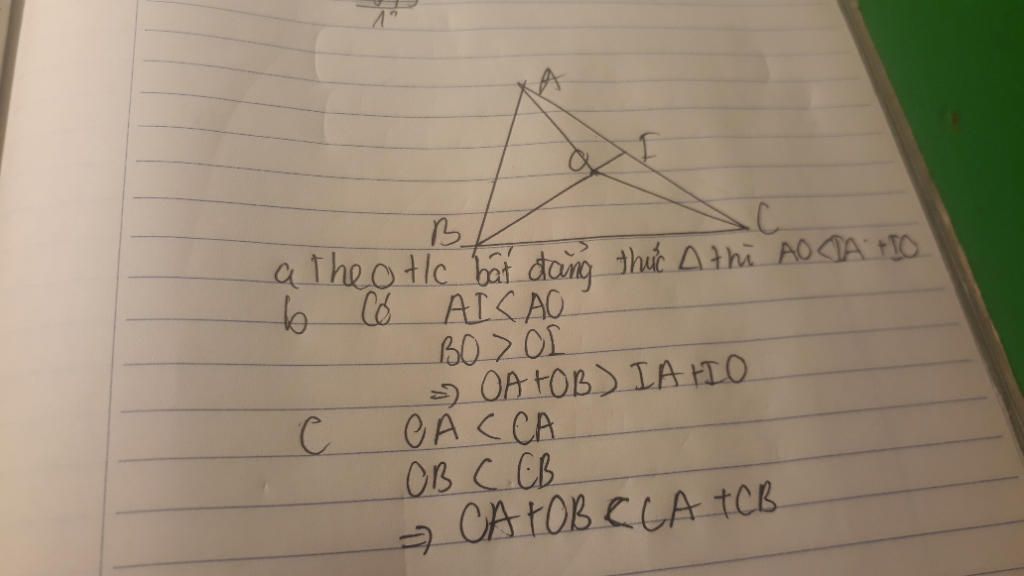 1º
A
I
O
B
C
a Theo t/c bất đẳng thức Δ thì AO < IA + IO
b Có AI < AO
BO > OI
=> OA + OB > IA + IO
C OA < CA
OB < CB
=> OA + OB < CA + CB